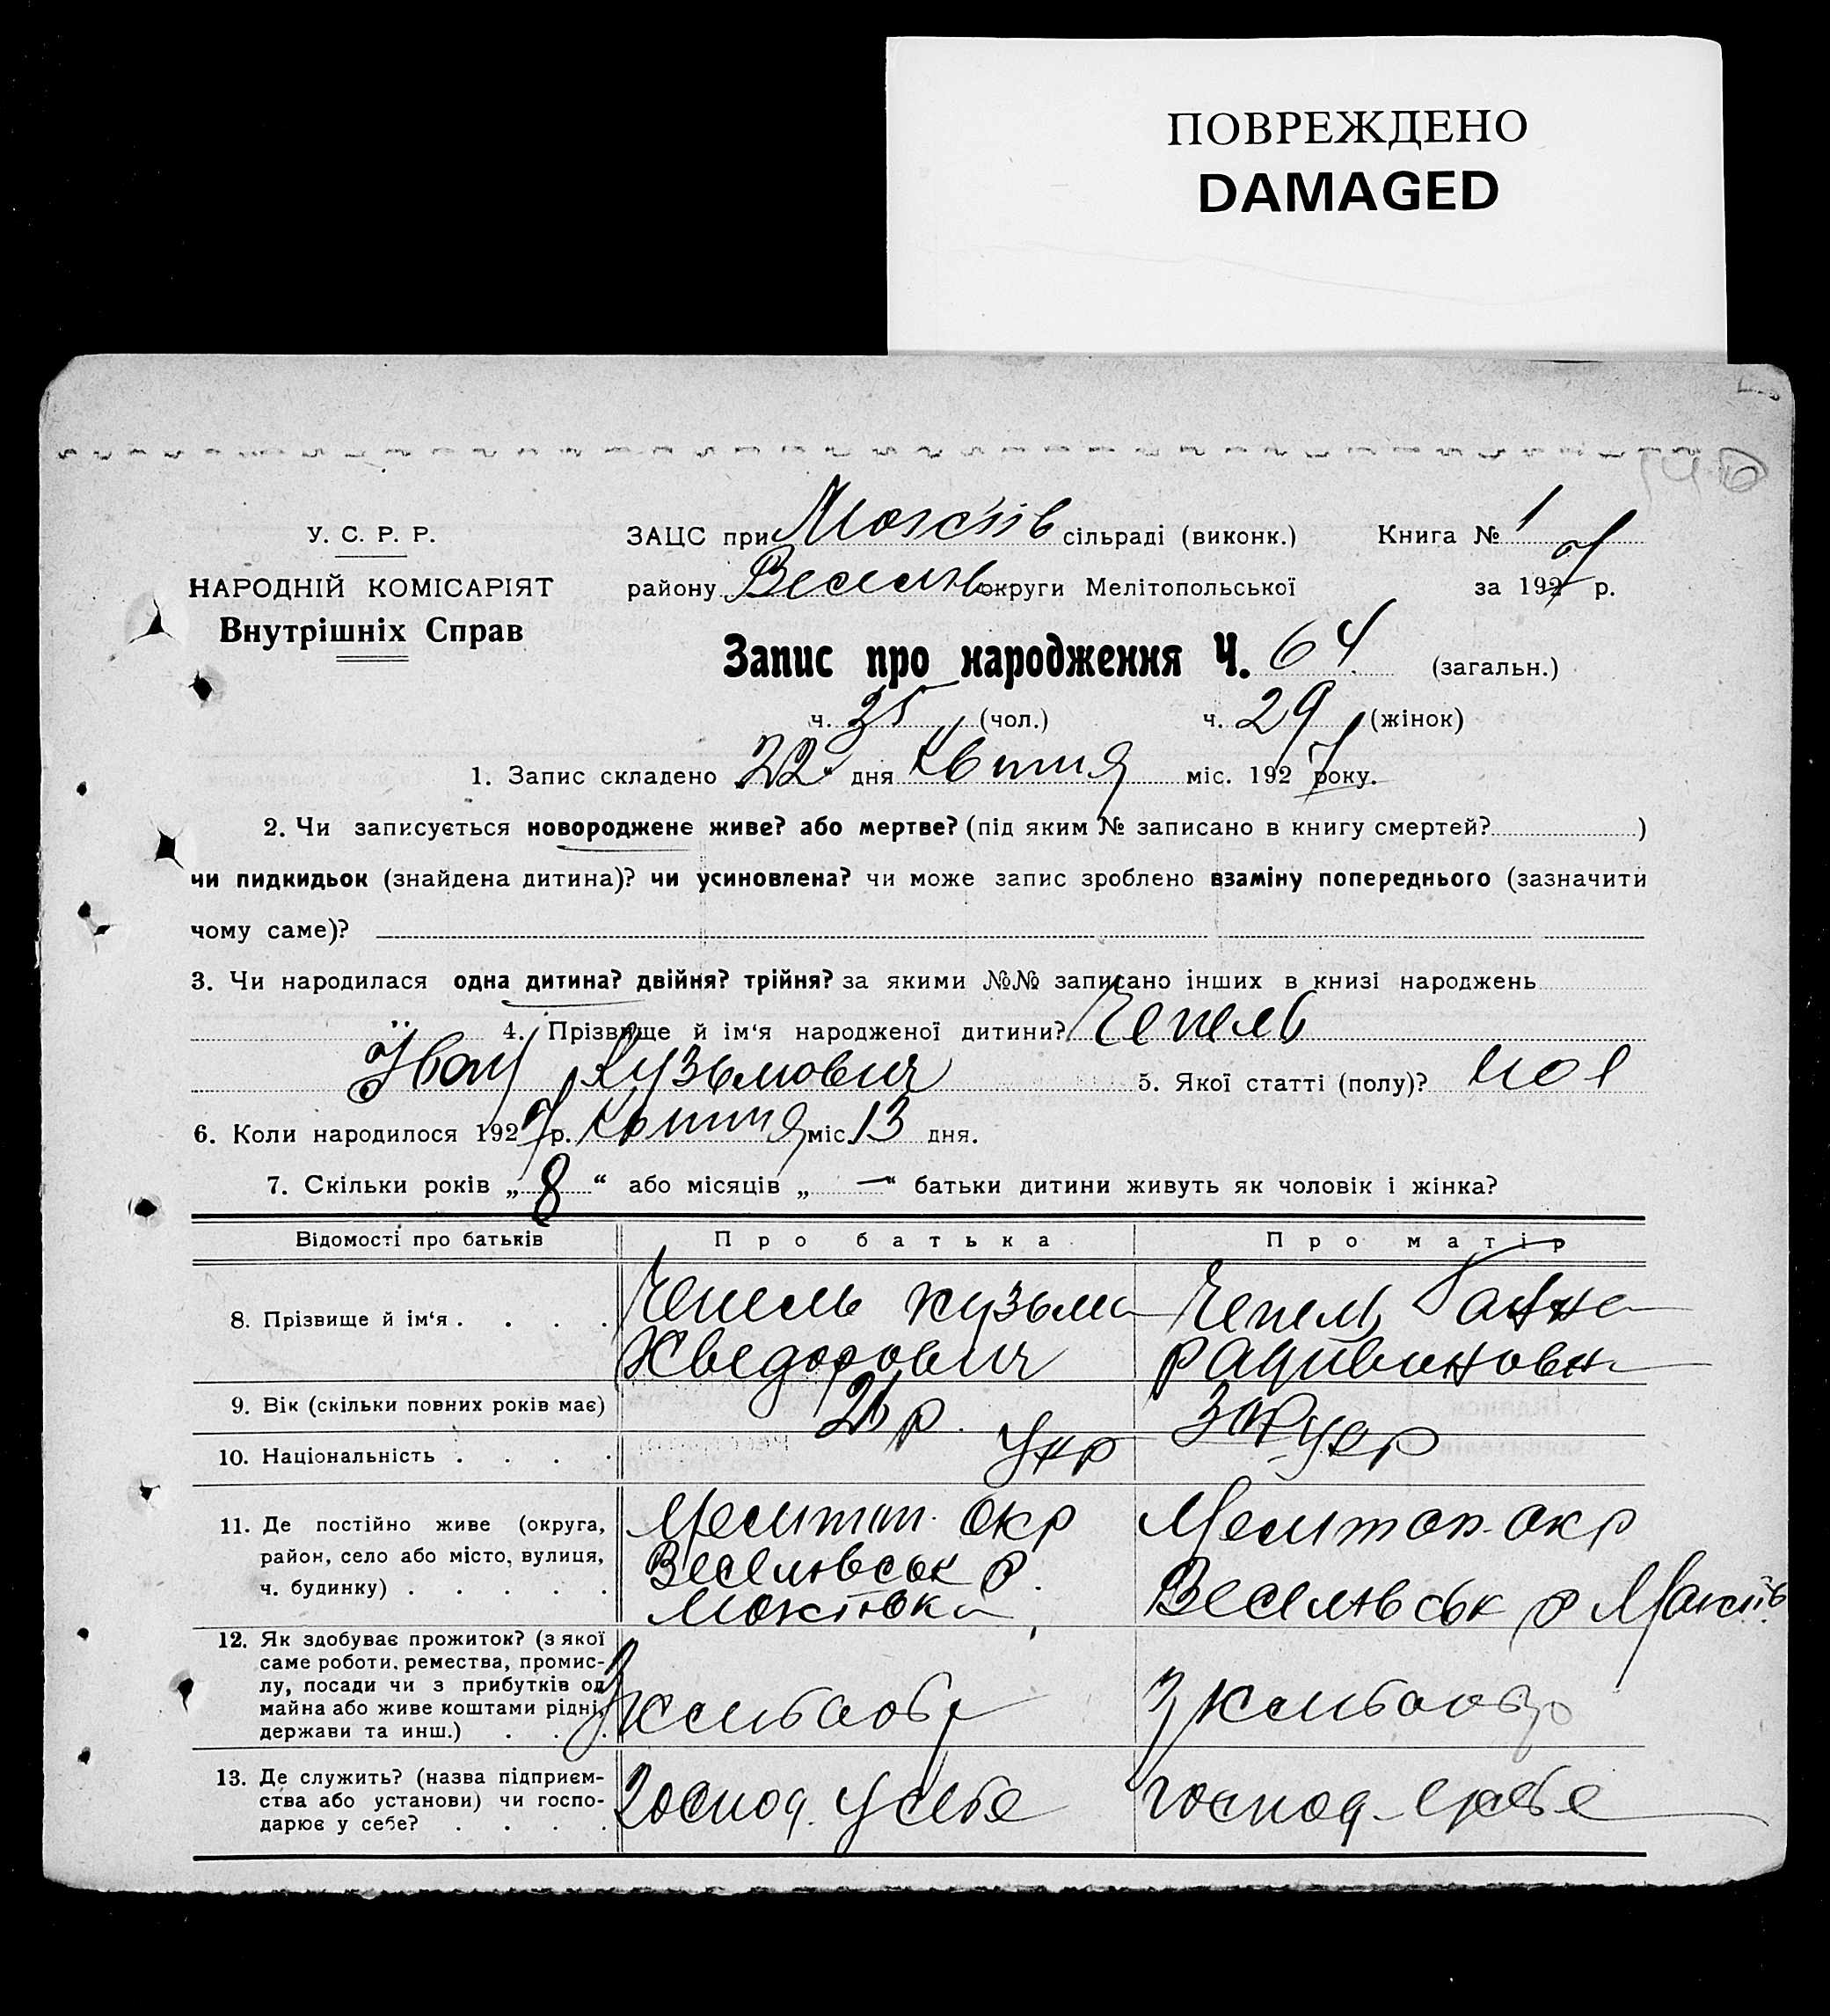 ПОВРЕЖДЕНО
DAMAGED
У. С. Р. Р.
НАРОДНІЙ КОМІСАРІЯТ
Внутрішніх Справ
ЗАЦС при сільраді (виконк.) Книга № 1
району Весел округи Мелітопольської за 1927 р.
Запис про народження Ч. 64 (загальн.)
ч. 35 (чол.) ч. 29 (жінок)
1. Запис складено 22 “ дня Квітня міс. 1927 року.
2. Чи записується новороджене живе? або мертве? (під яким № записано в книгу смертей? )
чи пидкидьок (знайдена дитина)? чи усиновлена? чи може запис зроблено взаміну попереднього (зазначити
чому саме)?
3. Чи народилася одна дитина? двійня? трійня? за якими №№ записано інших в книзі народжень
4. Прізвище й ім‘я народженої дитини? Чепель
Їван Кузьмович 5. Якої статті (полу)? чол
6. Коли народилося 1927 р. Квітня міс. 13 дня.
7. Скільки років „ 8 “ або місяців „ — “ батьки дитини живуть як чоловік і жінка?
Відомості про батьків Про батька Про матір
8. Прізвище й ім‘я . . . . Чепель Кузьма Чепель Ганна
Хведорович
9. Вік (скільки повних років має) 26 р.
10. Національність . . . . Укр Укр
11. Де постійно живе (округа, Мелітоп. окр Мелітоп. окр
район, село або місто, вулиця, Веселівськ р.
ч. будинку) . . . . . Веселівськ р
12. Як здобуває прожиток? (з якої
саме роботи, ремества, промис-
лу, посади чи з прибутків од
майна або живе коштами рідні, З хлібообр З хлібообр
держави та инш.) . . .
13. Де служить? (назва підприєм-
ства або установи) чи госпо- господ. у себе господ. у себе
дарює у себе? . . . .